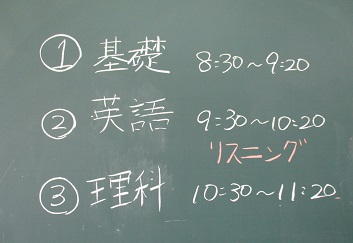 ① 基礎 8:30～9:20
② 英語 9:30～10:20
リスニング
③ 理科 10:30～11:20